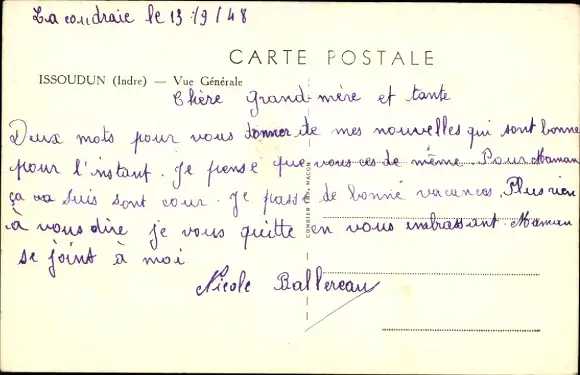 La coudraie le 13/9/48
CARTE POSTALE
ISSOUDUN (Indre) — Vue Générale
Chère Grand-mère et tante
Deux mots pour vous donner de mes nouvelles qui sont bonne
pour l'instant. Je pense que vous ces de même. Pour Maman
ça va suis sont cour. Je passe de bonne vacances. Plus rien
à vous dire je vous quitte en vous embrassant. Maman
se joint à moi
Nicole Ballereau
COMBIER IMP. MACON